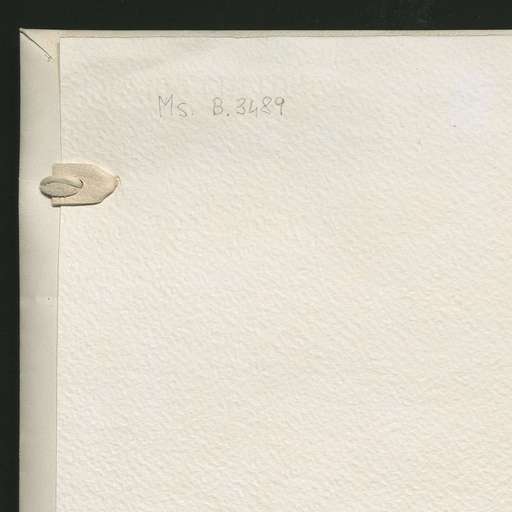 Ms. B.3489